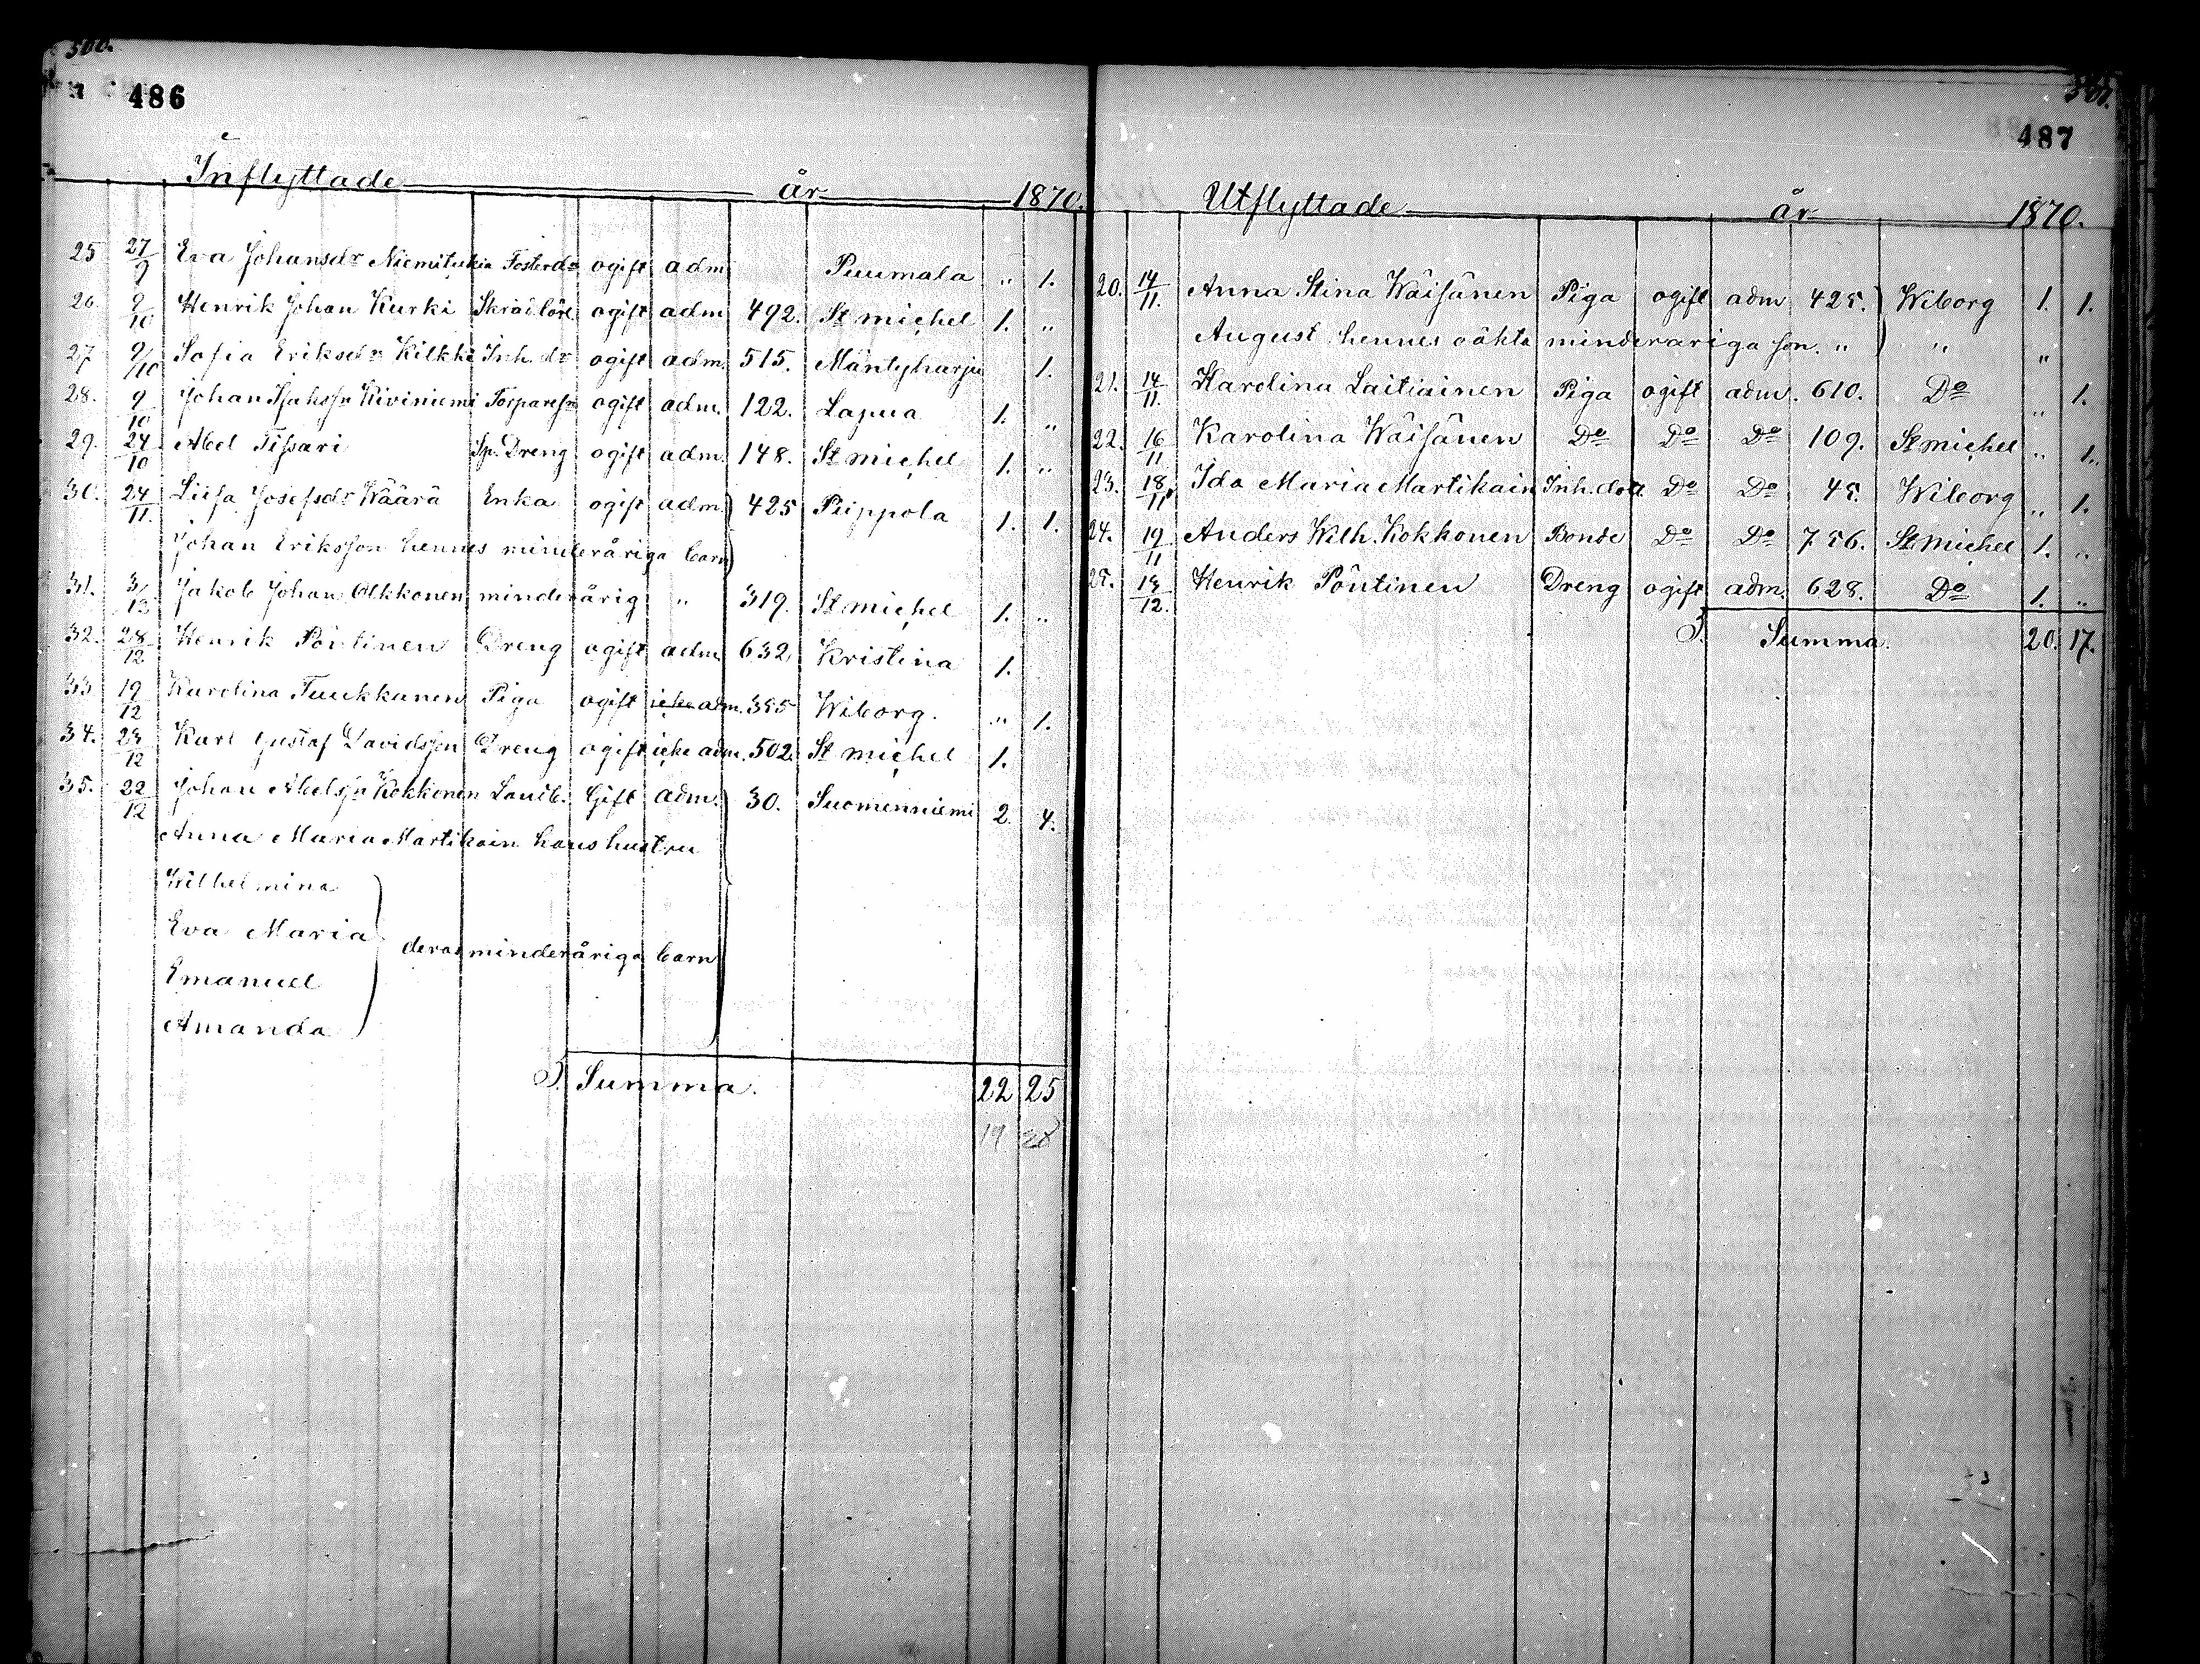 486
Inflyttade år 1870.
25 27/9 Eva Johansdr Niemitukia Fosterdr ogift adm Puumala " 1.
26. 9/10 Henrik Johan Kurki Skrädlöre ogift adm 492. St michel 1. "
27 9/10 Sofia Eriksdr Kilkki Inh. dr ogift adm. 515. Mäntyharju 1.
28. 9/10 Johan Kiviniemi Torparesn ogift adm. 122. Lapua 1. "
29. 24/10 Abel Tissari Sp. Dreng ogift adm. 148. St michel 1. "
30. 24/11. Liisa Josefsdr Wäärä Enka ogift adm 425 Piippola 1. 1.
Johan Eriksson hennes minderåriga barn
31. 3/13 Jakob Johan Olkkonen minderårig " 319. St michel 1. "
32. 28/12 Henrik Pöntinen Dreng ogift adm 632 Kristina 1.
33. 19/12 Karolina Tuukkanen Piga ogift icke adm. 355 Wiborg. " 1.
34. 23/12 Karl Gustaf Davidsson Dreng ogift icke adm. 502. St michel 1.
35. 22/12 Johan Abelsn Kokkonen Lanib. Gift adm. 30. Suomenniemi 2. 4.
Anna Maria Martikain hans hustru
Wilhelmina
Eva Maria
deras minderåriga barn
Emanuel
Amanda
Summa. 22 25
19 28
487
Utflyttade år 1870.
20. 14/11. Anna Stina Wäisänen Piga ogift adm 425. Wiborg 1. 1.
August hennes oäkta minderariga son. " " "
21. 14/11. Karolina Laitiainen Piga ogift adm. 610. Do " 1.
22. 16/11 Karolina Wäisänen Do Do Do 109. St michel " 1.
23. 18/11 Ida Maria Martikain Inh. dotr Do Do 45. Wiborg " 1.
24. 19/11 Anders Wilh. Kokkonen Bonde Do Do 756. St. Michel 1. "
25. 13/12. Henrik Pöntinen Dreng ogift adm. 628. Do 1. "
Summa. 20. 17.